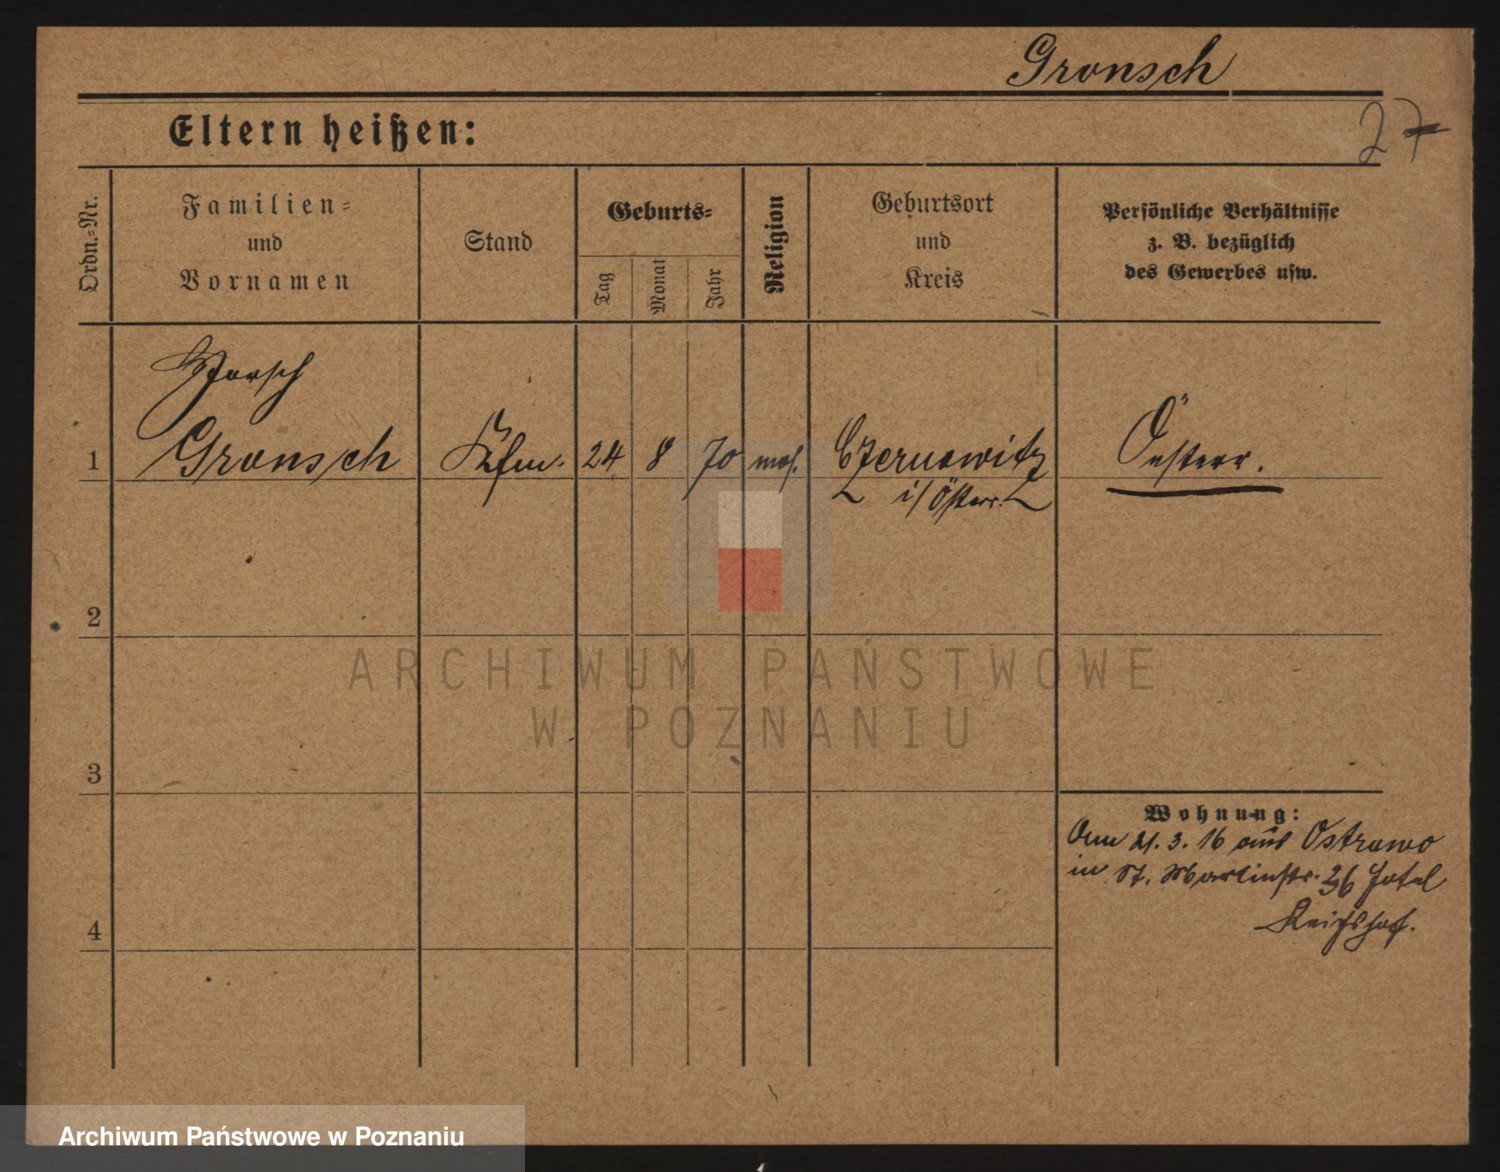 Gronsch
27
Eltern heißen:
Ordn.-Nr.
Familien-
und
Vornamen
Stand
Geburts-
Tag
Monat
Jahr
Religion
Geburtsort
und
Kreis
Persönliche Verhältnisse
z. B. bezüglich
des Gewerbes usw.
1
Gronsch
Kfm.
24
8
70
mos.
Czernowitz
i/Österr.
Oesterr.
2
3
4
Wohnung:
Am 21. 3. 16 aus Ostrowo
in St. Martinstr. 36 Hotel
Reichshof.
ARCHIWUM PAŃSTWOWE
W POZNANIU
Archiwum Państwowe w Poznaniu